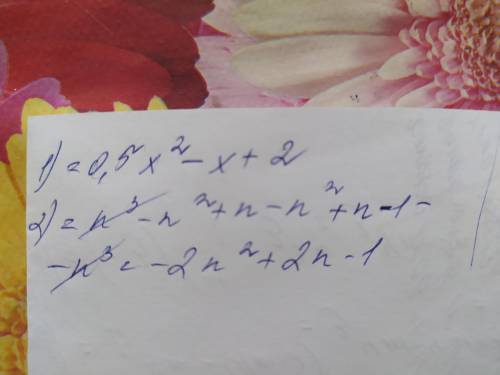 1) = 0,5x² - x + 2
2) = n³ - n² + n - n² + n - 1 -
- n³ = -2n² + 2n - 1